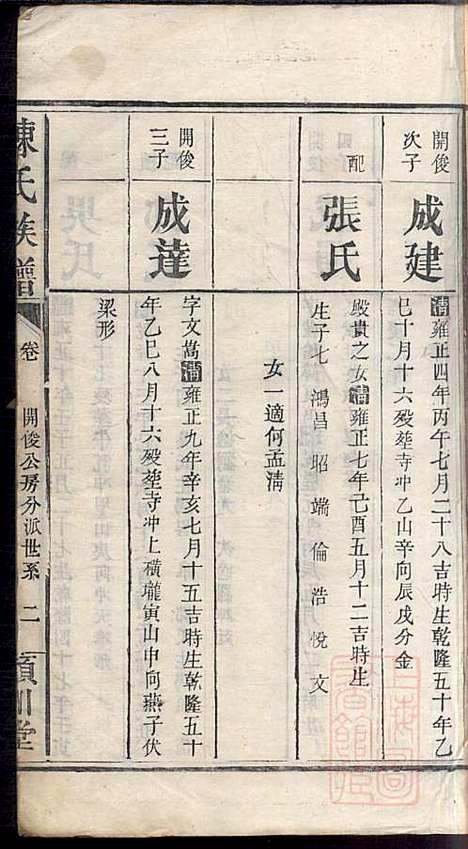 開俊
次子
成建
清雍正四年丙午七月二十八吉時生乾隆五十年乙
巳十月十六歿塟寺冲乙山辛向辰戌分金
配
張氏
殿貴之女清雍正七年己酉五月十二吉時生
生子七 鴻昌 昭 端 倫 浩 悅 文
女一適何孟清
開俊
三子
成達
字文蒿清雍正九年辛亥七月十五吉時生乾隆五十
年乙巳八月十六歿塟寺冲上磺壠寅山申向燕子伏
梁形
陳氏族譜
卷
開俊公房分派世系
二
潁川堂